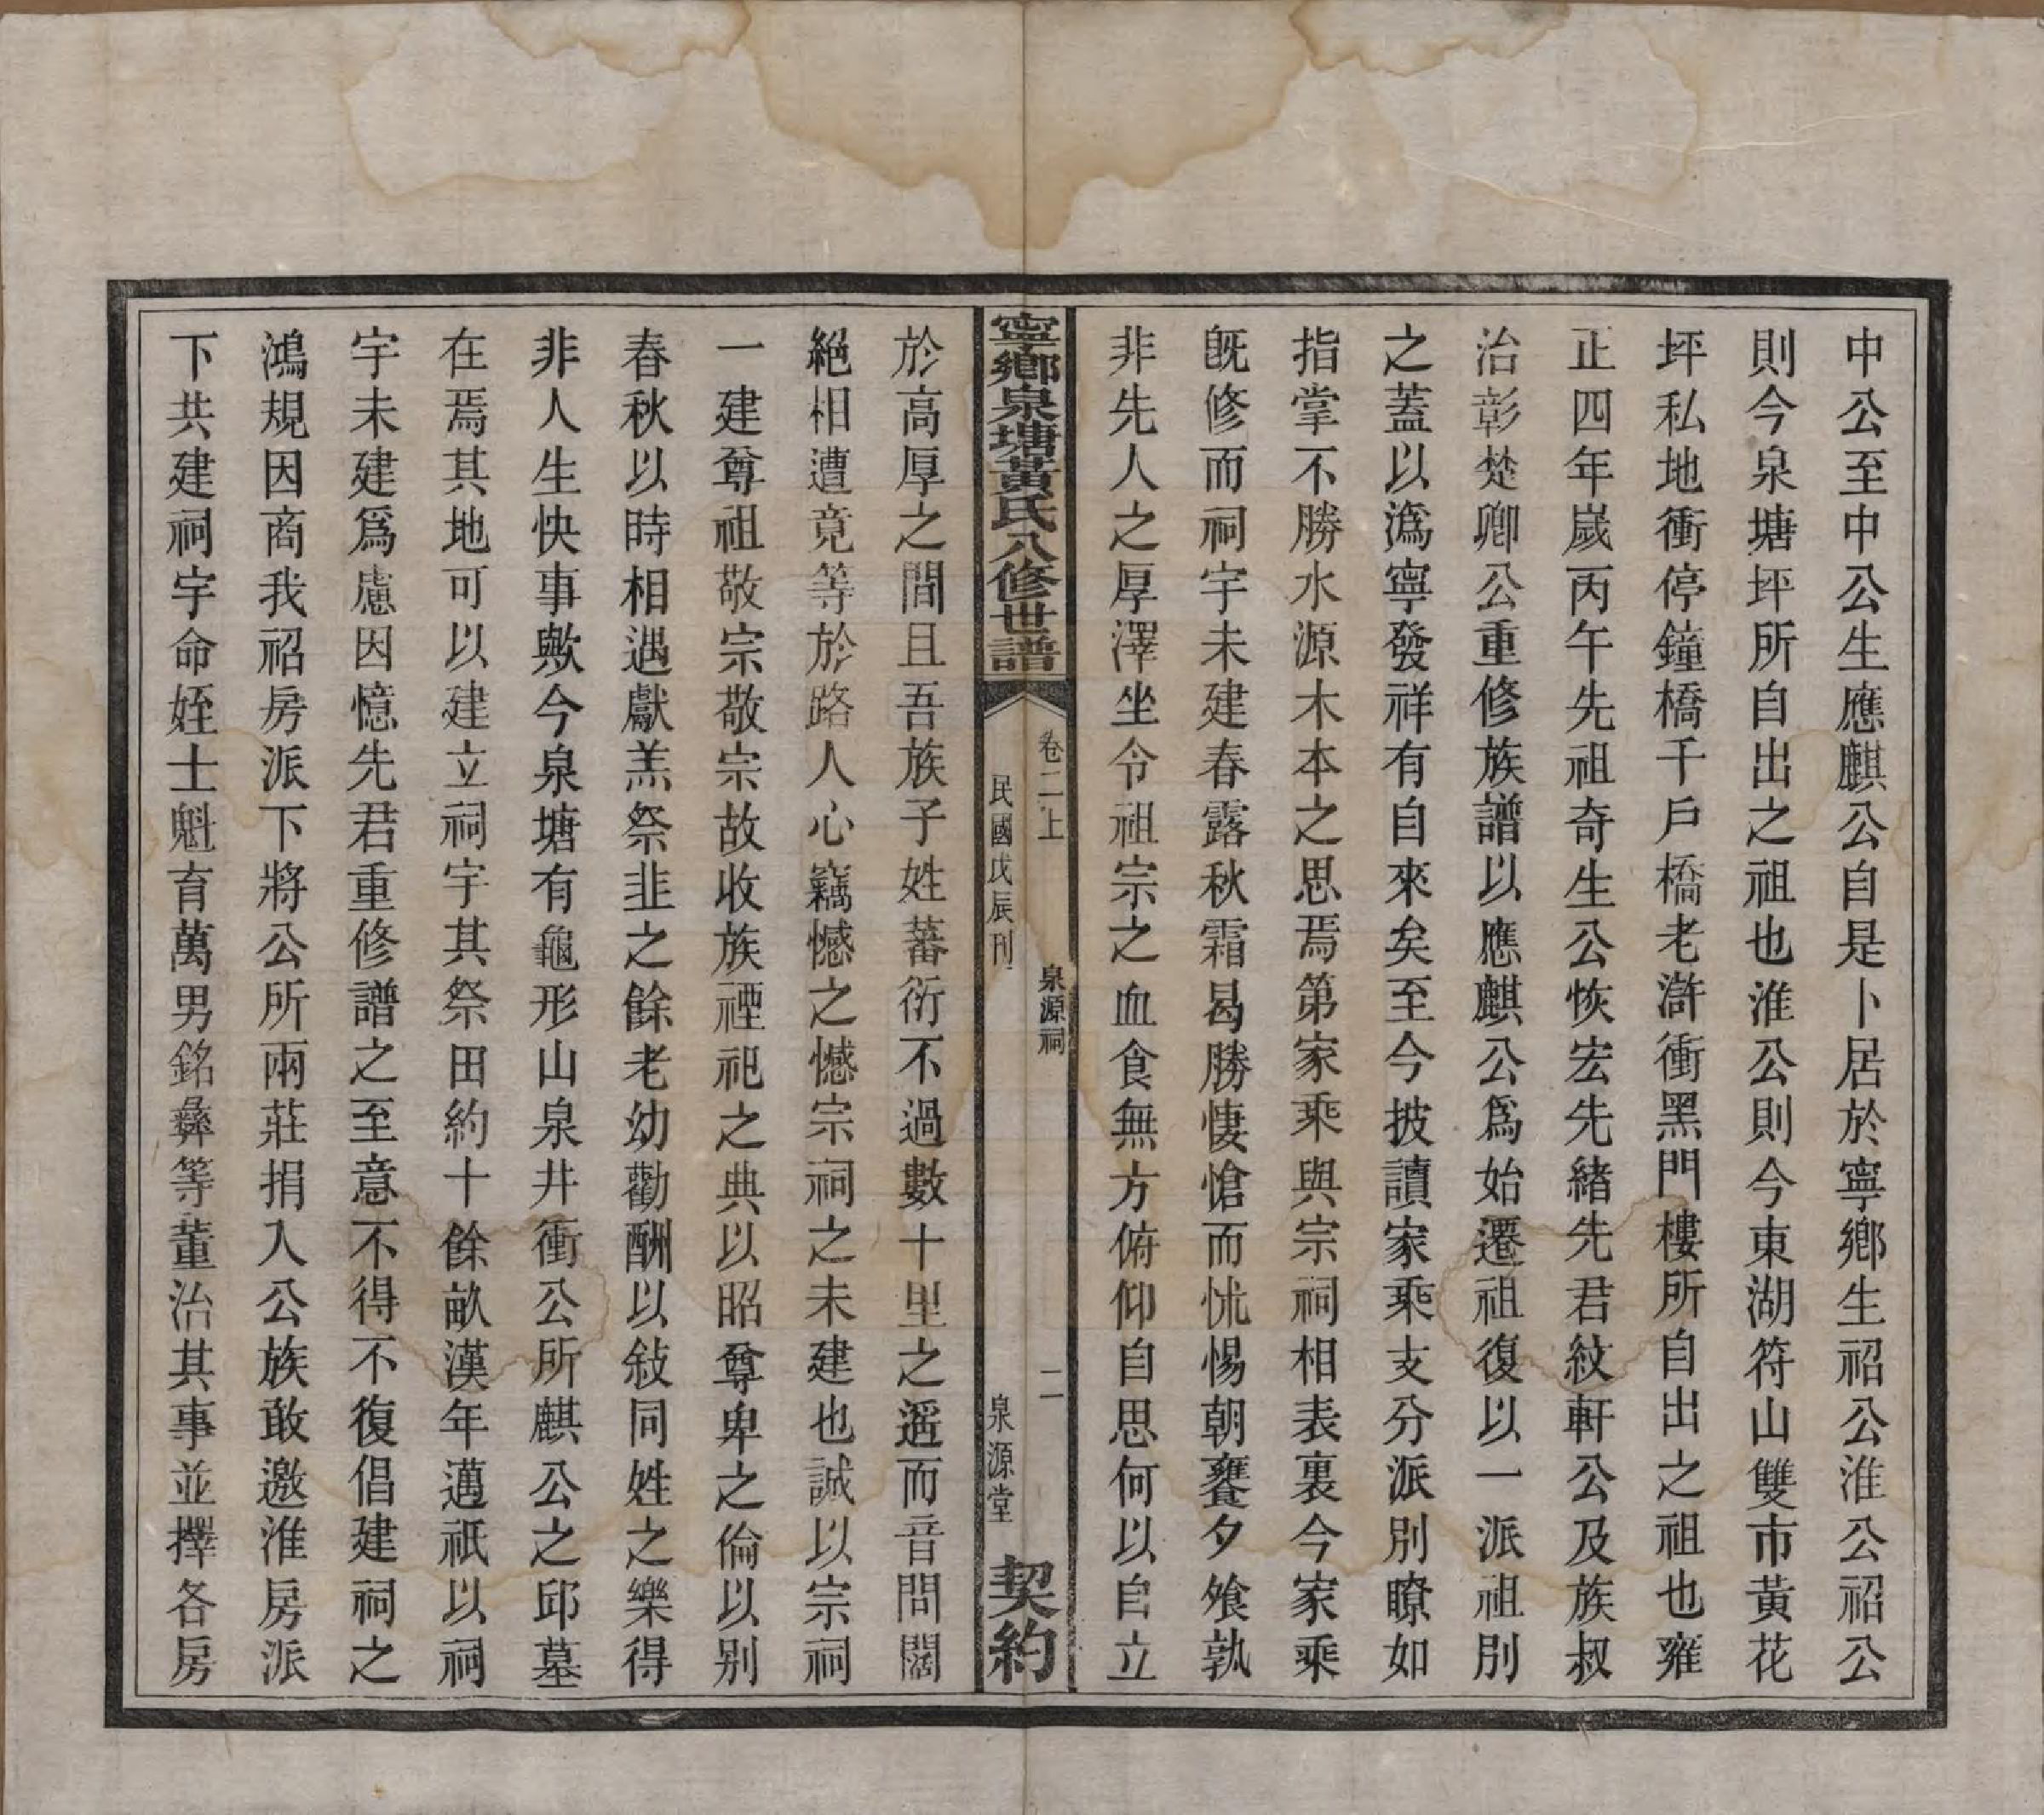 中公至中公生應麒公自是卜居於寧鄉生祒公淮公祒公
則今泉塘坪所自出之祖也淮公則今東湖符山雙市黃花
坪私地衝停鐘橋千戶橋老滸衝黑門樓所自出之祖也雍
正四年歲丙午先祖奇生公恢宏先緒先君紋軒公及族叔
治彰楚卿公重修族譜以應麒公爲始遷祖復以一派祖別
之蓋以潙寧發祥有自來矣至今披讀家乘支分派別瞭如
指掌不勝水源木本之思焉第家乘與宗祠相表裏今家乘
旣修而祠宇未建春露秋霜曷勝悽愴而怵惕朝饔夕飧孰
非先人之厚澤坐令祖宗之血食無方俯仰自思何以自立
寧鄉泉塘黃氏八修世譜
卷二上
泉源祠
二
民國戊辰刊
泉源堂
契約
於高厚之間且吾族子姓蕃衍不過數十里之遥而音問闊
絕相遭竟等於路人心竊憾之憾宗祠之未建也誠以宗祠
一建尊祖敬宗敬宗故收族禋祀之典以昭尊卑之倫以别
春秋以時相遇獻羔祭韭之餘老幼勸酬以敍同姓之樂得
非人生快事歟今泉塘有龜形山泉井衝公所麒公之邱墓
在焉其地可以建立祠宇其祭田約十餘畝漢年邁祇以祠
宇未建爲慮因憶先君重修譜之至意不得不復倡建祠之
鴻規因商我祒房派下將公所兩莊捐入公族敢邀淮房派
下共建祠宇命姪士魁育萬男銘彝等董治其事並擇各房